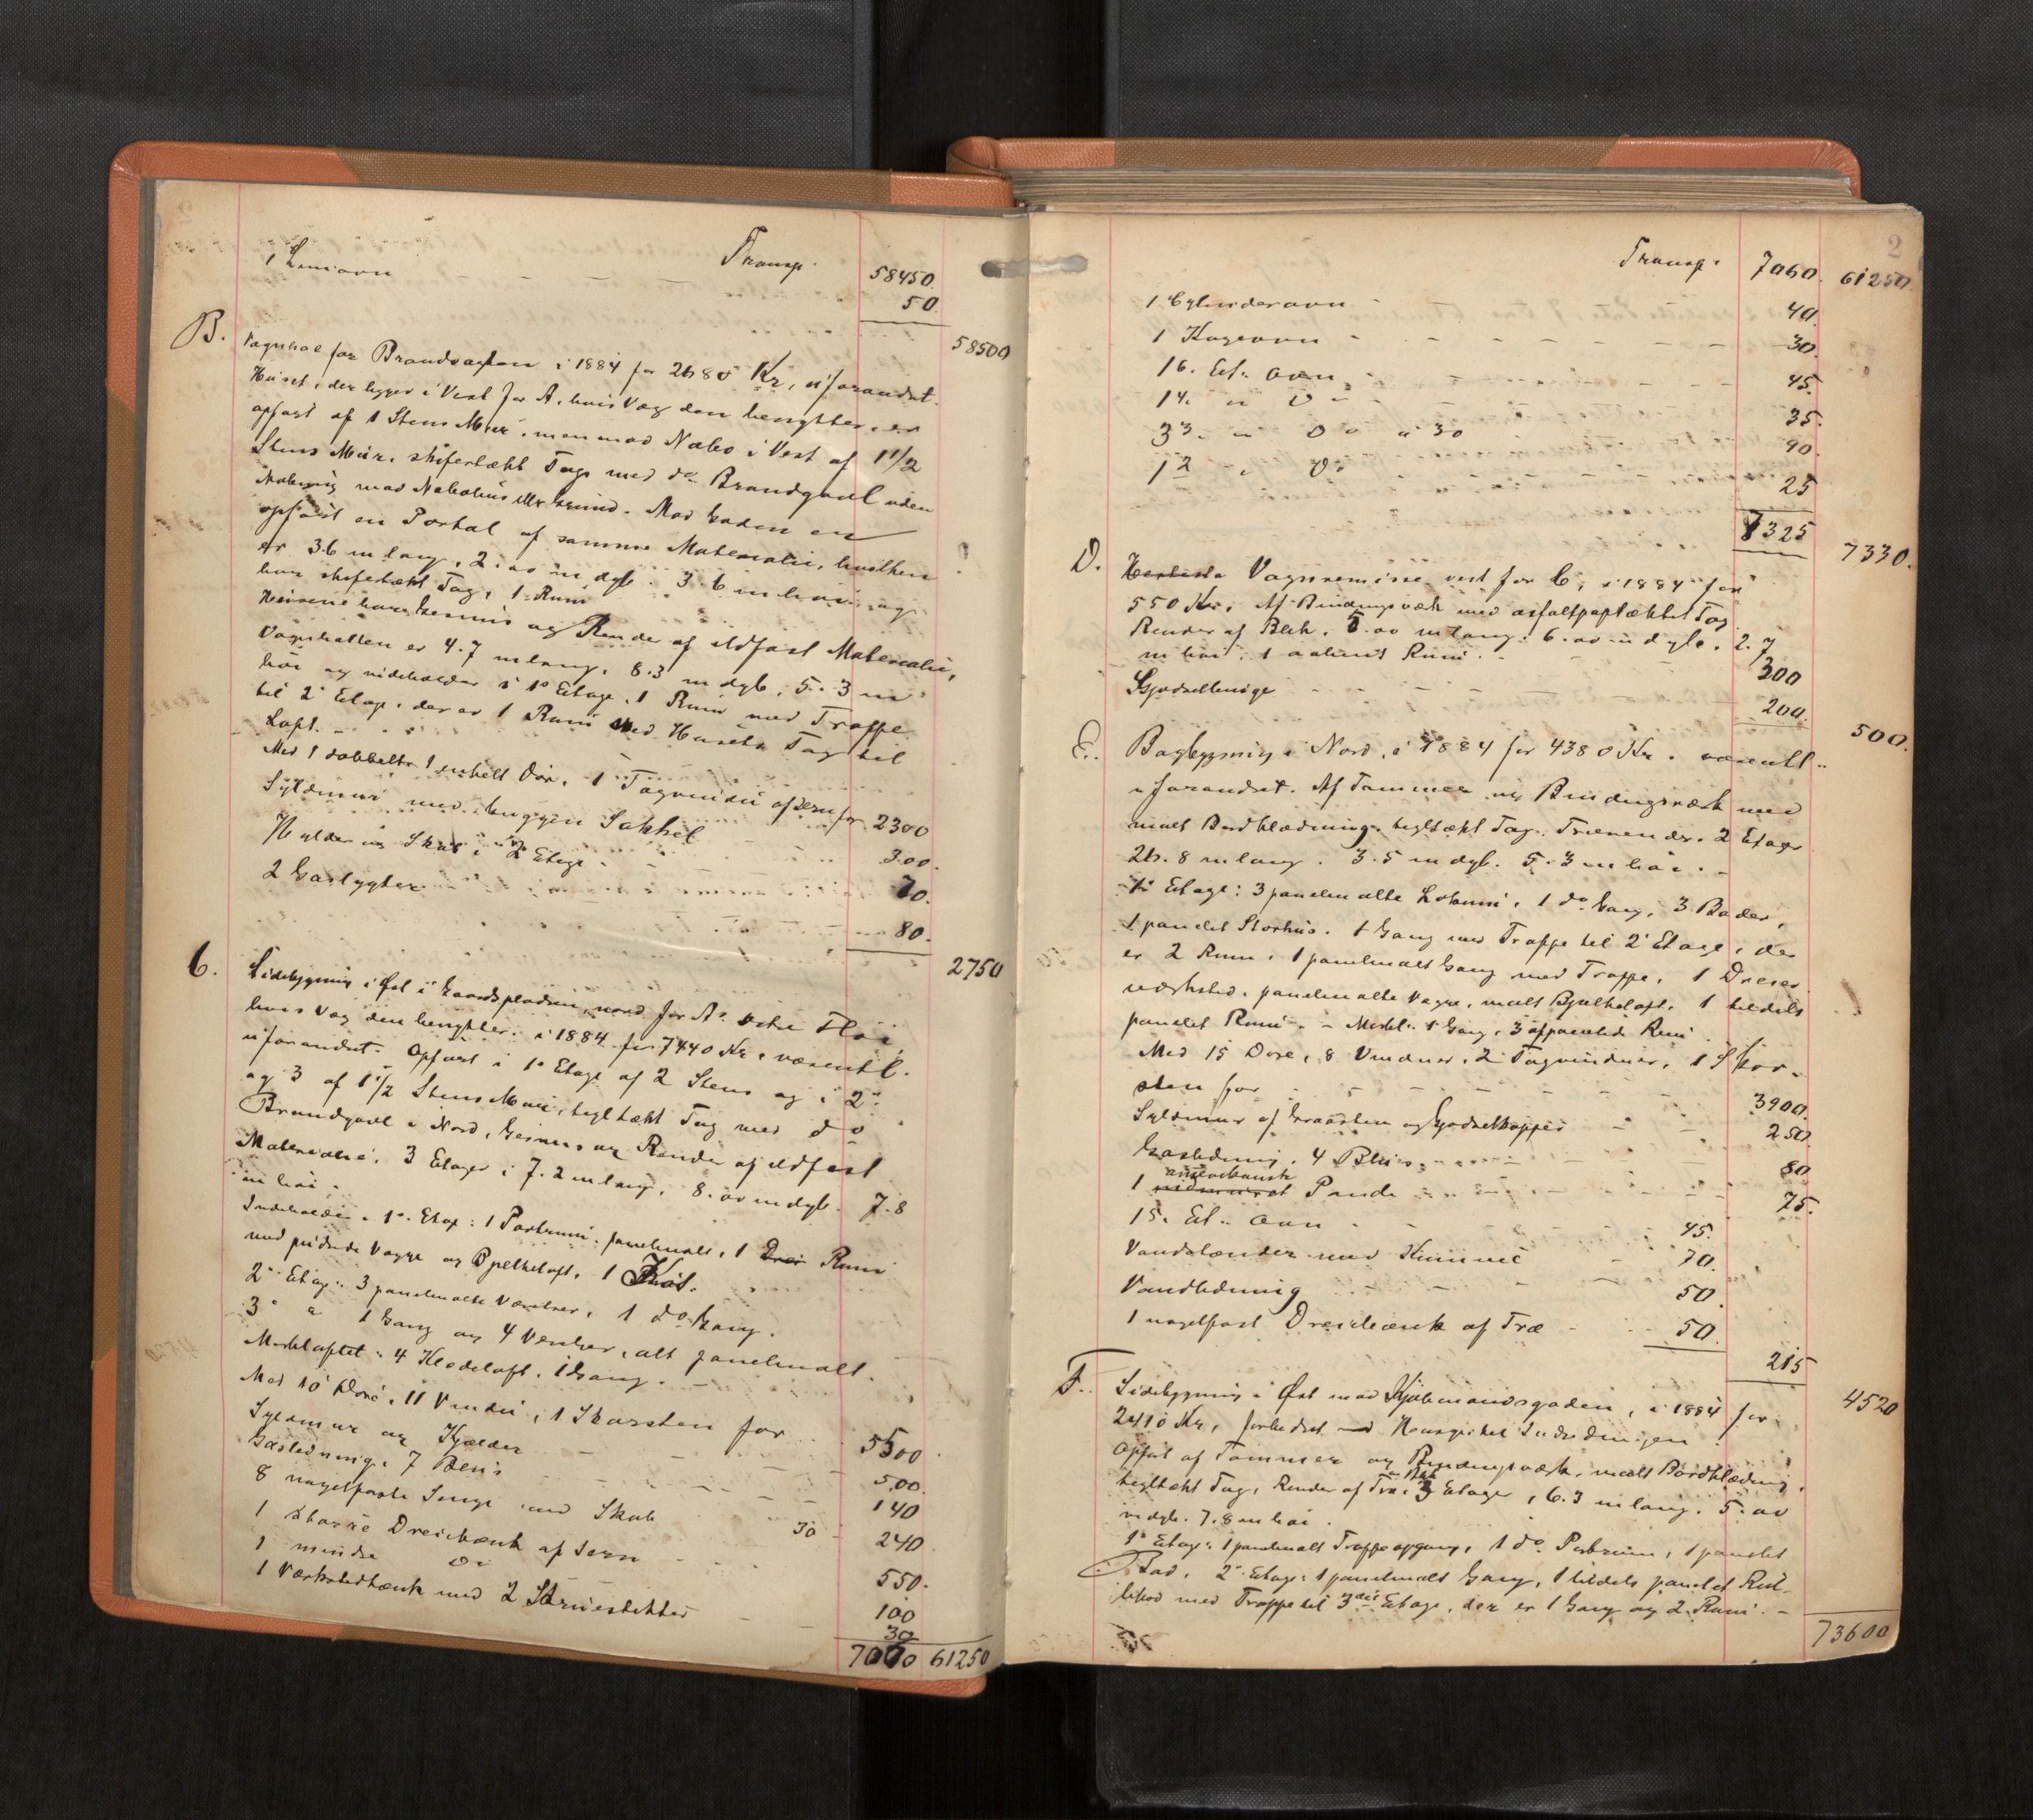 Transp. 58450.
1 Luniovn 50.
58500
B. Vognhal for Brandvagten i 1884 for 2680 Kr, uforandret.
Huset, der ligger i Vest for A, hvis Væg den benytter, er
opført af 1 Stens Mur, men mod Nabo i Vest af 1 1/2
Stens Mur, skifertækt Tag med do Brandgavl uden
Aabning mod Nabohus eller Grund. Mod Gaden en
opført en Portal af samme Materiale, hvilken
er 3.6 m lang, 2.00 m dyb. 3.6 m høi og
har skifertækt Tag, 1 Rum
Husene have Gesims og Rende af ildfast Materiale,
Vognhallen er 4.7 m lang, 8.3 m dyb, 5.3 m
høi og indeholder i 1e Etage, 1 Rum med Trappe
til 2e Etage, der er 1 Rum med Husets Tag til
Loft.
Med 1 dobbelt, 1 enkelt Dør, 1 Tagvindu af Jern for 2300
Syldmur med huggen Sokkel 300.
Hylder og Skab i 2e Etage 70.
2 Gaslygter 80.
2750
C. Sidebygning i Øst i Gaardspladsen, nord for A's østre Fløi,
hvis Væg den benytter. i 1884 for 7440 Kr, væsentl.
uforandret. Opført i 1e Etage af 2 Stens og i 2e
og 3 af 1 1/2 Stens Mur, tegltækt Tag med do
Brandgavl i Nord, Gesims og Render af ildfast
Materiale. 3 Etager, 7.2 m lang, 8.00 m dyb. 7.8
m høi.
Indeholder. 1e Etage: 1 Portrum, panelmalt, 1 Rum
med pudsede Vægge og Bjelkeloft, 1 Kot.
2e Etage: 3 panelmalte Værelser, 1 do Gang.
3e " 1 Gang og 4 Værelser, alt panelmalt.
Mørkloftet: 4 Klædeloft, 1 Gang.
Med 10 Døre, 11 Vinduer, 1 Skorsten for 5500
Syldmur og Kjælder 500.
Gasledning, 7 Blus 140
8 nagelfaste Senge med Skab 30 240
1 større Dreiebænk af Jern 550.
1 mindre Do 100
1 Værkstedbænk med 2 Skruestikker 30
7070 61250
2
Transp. 7060. 61250
1 Cylinderovn 40.
1 Kogeovn 30.
1 6. Et. Ovn 45.
1 4. " Do 35.
3 3. " Do a 30 90.
1 2 " Do 25
7325
7330.
D. Vognremisse vest for C, i 1884 for
550 Kr. Af Bindingsværk med asfaltpaptækket Tag
Render af Blik. 5.00 m lang. 6.00 m dyb. 2.7
m høi. 1 aabent Rum. 300
Gjødselbinge 200.
500.
E. Bagbygning i Nord, i 1884 for 4380 Kr. væsentl.
uforandret. Af Tømmer og Bindingsværk med
malt Bordklædning, tegltækt Tag, Trærender. 2 Etager
26.8 m lang. 3.5 m dyb. 5.3 m høi.
1e Etage: 3 panelmalte Lokum, 1 do Gang, 3 Boder,
1 panelet Storhus. 1 Gang med Trappe til 2e Etage, der
er 2 Rum, 1 panelmalt Gang med Trappe, 1 Dreier
værksted, panelmalte Vægge, malt Bjelkeloft, 1 tildels
panelet Rum. Mørkl. 1 Gang, 3 oppanelede Rum.
Med 15 Døre, 8 Vinduer, 2 Tagvinduer, 1 Skor-
sten for 3900.
Syldmur af Graasten og Gjødselkopper 250
Gasledning. 4 Blus 80
1 amerikansk Pande 75.
1 5. Et. Ovn 45.
Vandstænder med Kumme 70.
Vandledning 50.
1 nagelfast Dreiebænk af Træ 50.
215
4520
F. Sidebygning i Øst mod Kjøbmandsgaden, i 1884 for
2410 Kr, forbedret med Hensyn til Indredningen
Opført af Tømmer og Bindingsværk, malt Bordklædning,
tegltækt Tag, Render af Træ & Blik 3 Etager, 6.3 m lang. 5.00
m dyb. 7.8 m høi.
1e Etage: 1 panelmalt Trappeopgang, 1 do Portrum, 1 panelet
Bod. 2e Etage: 1 panelmalt Gang, 1 tildels panelet
med Trappe til 3die Etage, der er 1 Gang og 2 Rum.
73600